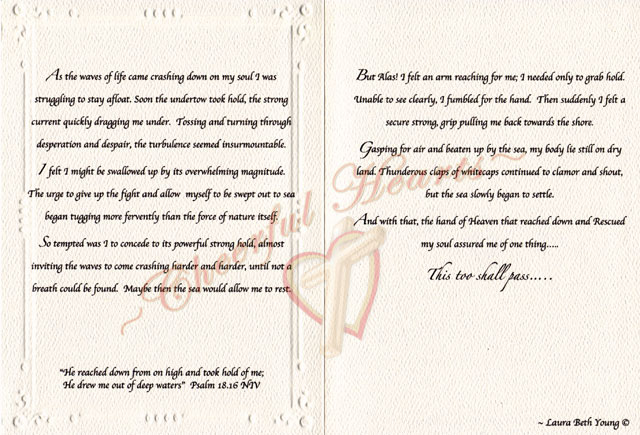 As the waves of life came crashing down on my soul I was
struggling to stay afloat. Soon the undertow took hold, the strong
current quickly dragging me under. Tossing and turning through
desperation and despair, the turbulence seemed insurmountable.
I felt I might be swallowed up by its overwhelming magnitude.
The urge to give up the fight and allow myself to be swept out to sea
began tugging more fervently than the force of nature itself.
So tempted was I to concede to its powerful strong hold, almost
inviting the waves to come crashing harder and harder, until not a
breath could be found. Maybe then the sea would allow me to rest.
"He reached down from on high and took hold of me;
He drew me out of deep waters" Psalm 18.16 NIV
But Alas! I felt an arm reaching for me; I needed only to grab hold.
Unable to see clearly, I fumbled for the hand. Then suddenly I felt a
secure strong, grip pulling me back towards the shore.
Gasping for air and beaten up by the sea, my body lie still on dry
land. Thunderous claps of whitecaps continued to clamor and shout,
but the sea slowly began to settle.
And with that, the hand of Heaven that reached down and Rescued
my soul assured me of one thing.....
This too shall pass.....
~ Laura Beth Young ©
~Cheerful Hearts~